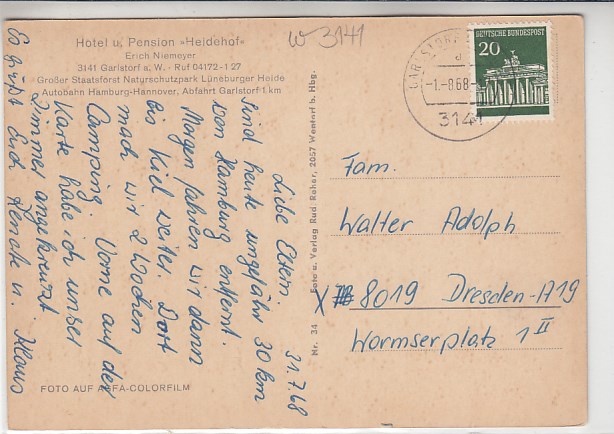 Hotel u. Pension »Heidehof«
Erich Niemeyer
3141 Garlstorf a. W. · Ruf 04172-127
Großer Staatsforst Naturschutzpark Lüneburger Heide
Autobahn Hamburg-Hannover, Abfahrt Garlstorf 1 km
W 3141
DEUTSCHE BUNDESPOST
20
-1.-8.68
3141
31.7.68
Liebe Eltern
Sind heute ungefähr 30 km
von Hamburg entfernt.
Morgen fahren wir dann
bis Kiel weiter. Dort
mach wir 2 Wochen
Camping. Vorne auf der
Karte habe ich unser
Zimmer angekreuzt
Es grüßt Euch Renate u. Klaus
Nr. 34 Foto u. Verlag Rud. Reher, 2057 Wentorf b. Hbg.
Fam.
Walter Adolph
X 8019 Dresden-A19
Wormserplatz 1 II
FOTO AUF AGFA-COLORFILM